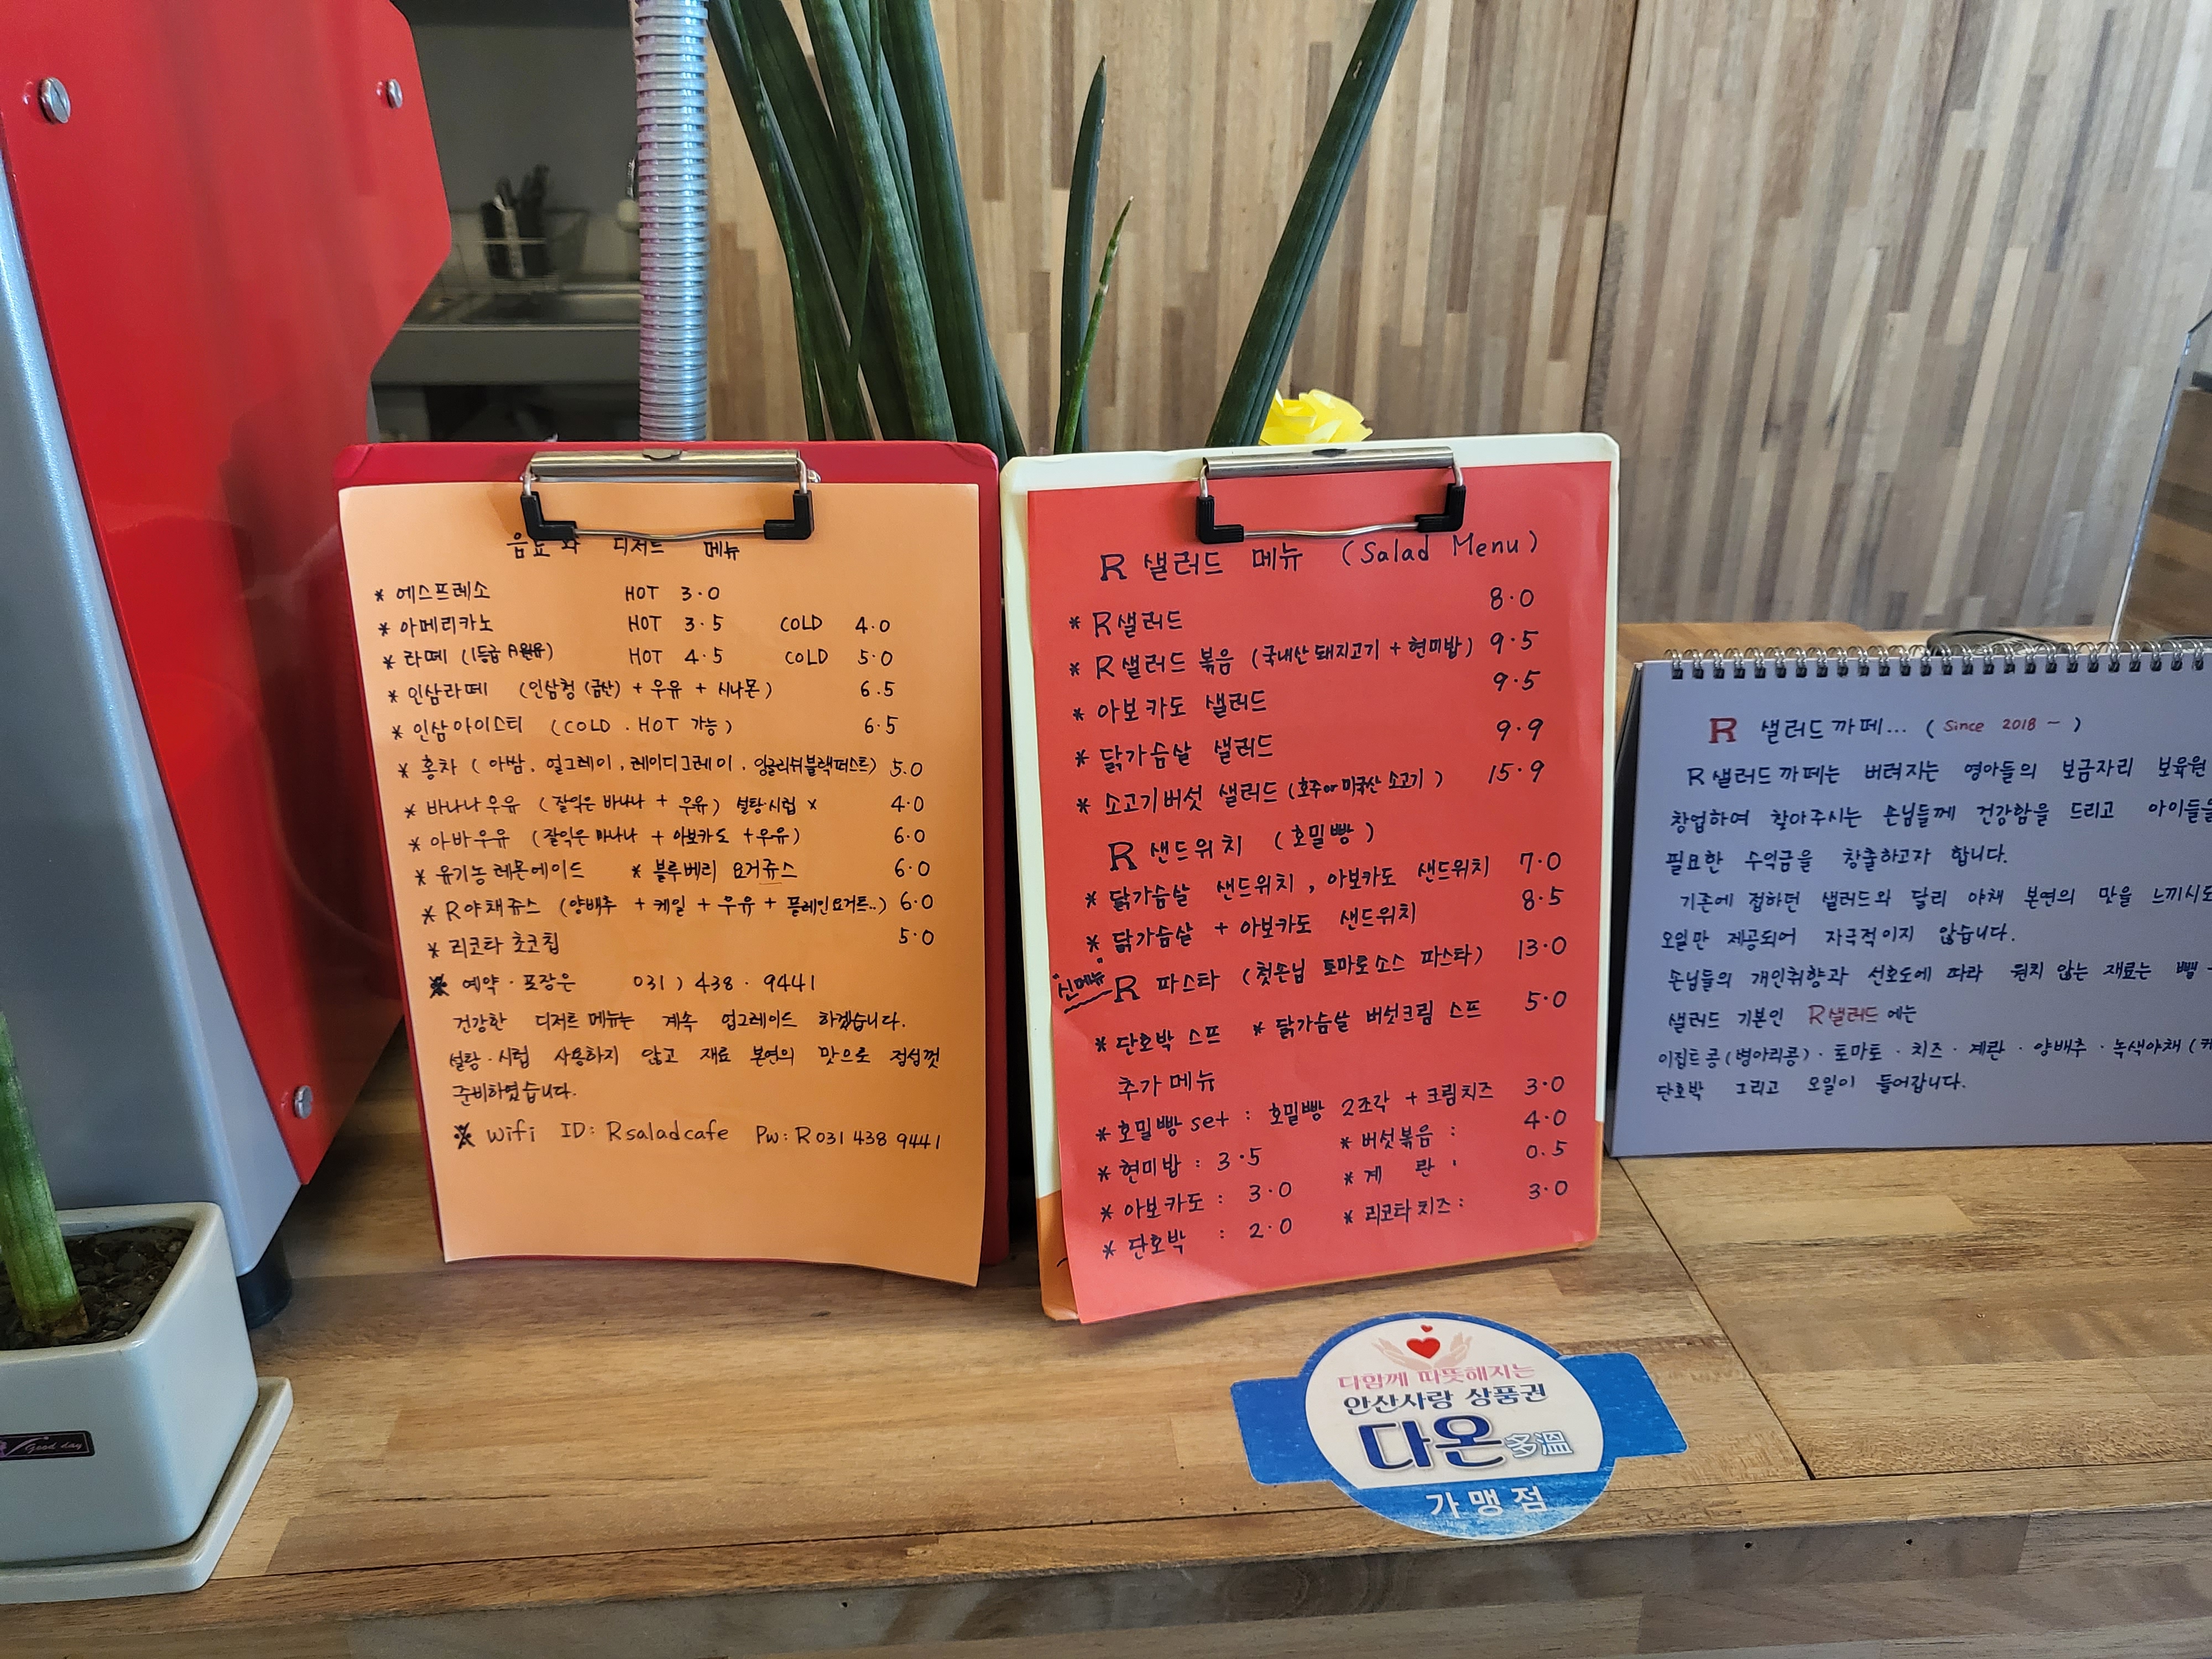 음료와 디저트 메뉴
* 에스프레소 HOT 3.0
* 아메리카노 HOT 3.5 COLD 4.0
* 라떼 (1등급 A원유) HOT 4.5 COLD 5.0
* 인삼라떼 (인삼청 (금산) + 우유 + 시나몬) 6.5
* 인삼아이스티 (COLD . HOT 가능) 6.5
* 홍차 ( 아쌈, 얼그레이, 레이디그레이, 잉글리쉬블랙퍼스트) 5.0
* 바나나우유 (잘익은 바나나 + 우유) 설탕·시럽 x 4.0
* 아바우유 (잘익은 바나나 + 아보카도 + 우유) 6.0
* 유기농레몬에이드 * 블루베리 요거쥬스 6.0
* R야채쥬스 (양배추 + 케일 + 우유 + 플레인요거트..) 6.0
* 리코타 초코칩 5.0
※ 예약·포장은 031) 438. 9441
건강한 디저트메뉴는 계속 업그레이드 하겠습니다.
설탕·시럽 사용하지 않고 재료 본연의 맛으로 정성껏
준비하였습니다.
※ Wifi ID: Rsaladcafe Pw: R031 438 9441
R 샐러드 메뉴 (Salad Menu)
* R샐러드 8.0
* R샐러드 볶음 (국내산 돼지고기 + 현미밥) 9.5
* 아보카도 샐러드 9.5
* 닭가슴살 샐러드 9.9
* 소고기버섯 샐러드 (호주or미국산 소고기) 15.9
R 샌드위치 (호밀빵)
* 닭가슴살 샌드위치, 아보카도 샌드위치 7.0
* 닭가슴살 + 아보카도 샌드위치 8.5
신메뉴 R 파스타 (첫손님 토마토소스 파스타) 13.0
* 단호박 스프 * 닭가슴살 버섯크림 스프 5.0
추가 메뉴
* 호밀빵 set : 호밀빵 2조각 + 크림치즈 3.0
* 현미밥 : 3.5 * 버섯볶음 : 4.0
* 아보카도 : 3.0 * 계 란 : 0.5
* 단호박 : 2.0 * 리코타치즈 : 3.0
R 샐러드까페... ( Since 2018 ~ )
R샐러드까페는 버려지는 영아들의 보금자리 보육원
창업하여 찾아주시는 손님들께 건강함을 드리고 아이들을
필요한 수익금을 창출하고자 합니다.
기존에 접하던 샐러드와 달리 야채 본연의 맛을 느끼시도
오일만 제공되어 자극적이지 않습니다.
손님들의 개인취향과 선호도에 따라 원치 않는 재료는 뺄
샐러드 기본인 R샐러드에는
이집트콩(병아리콩)·토마토·치즈·계란·양배추·녹색야채(케
단호박 그리고 오일이 들어갑니다.
다함께 따뜻해지는
안산사랑 상품권
다온 多溫
가맹점
Good day